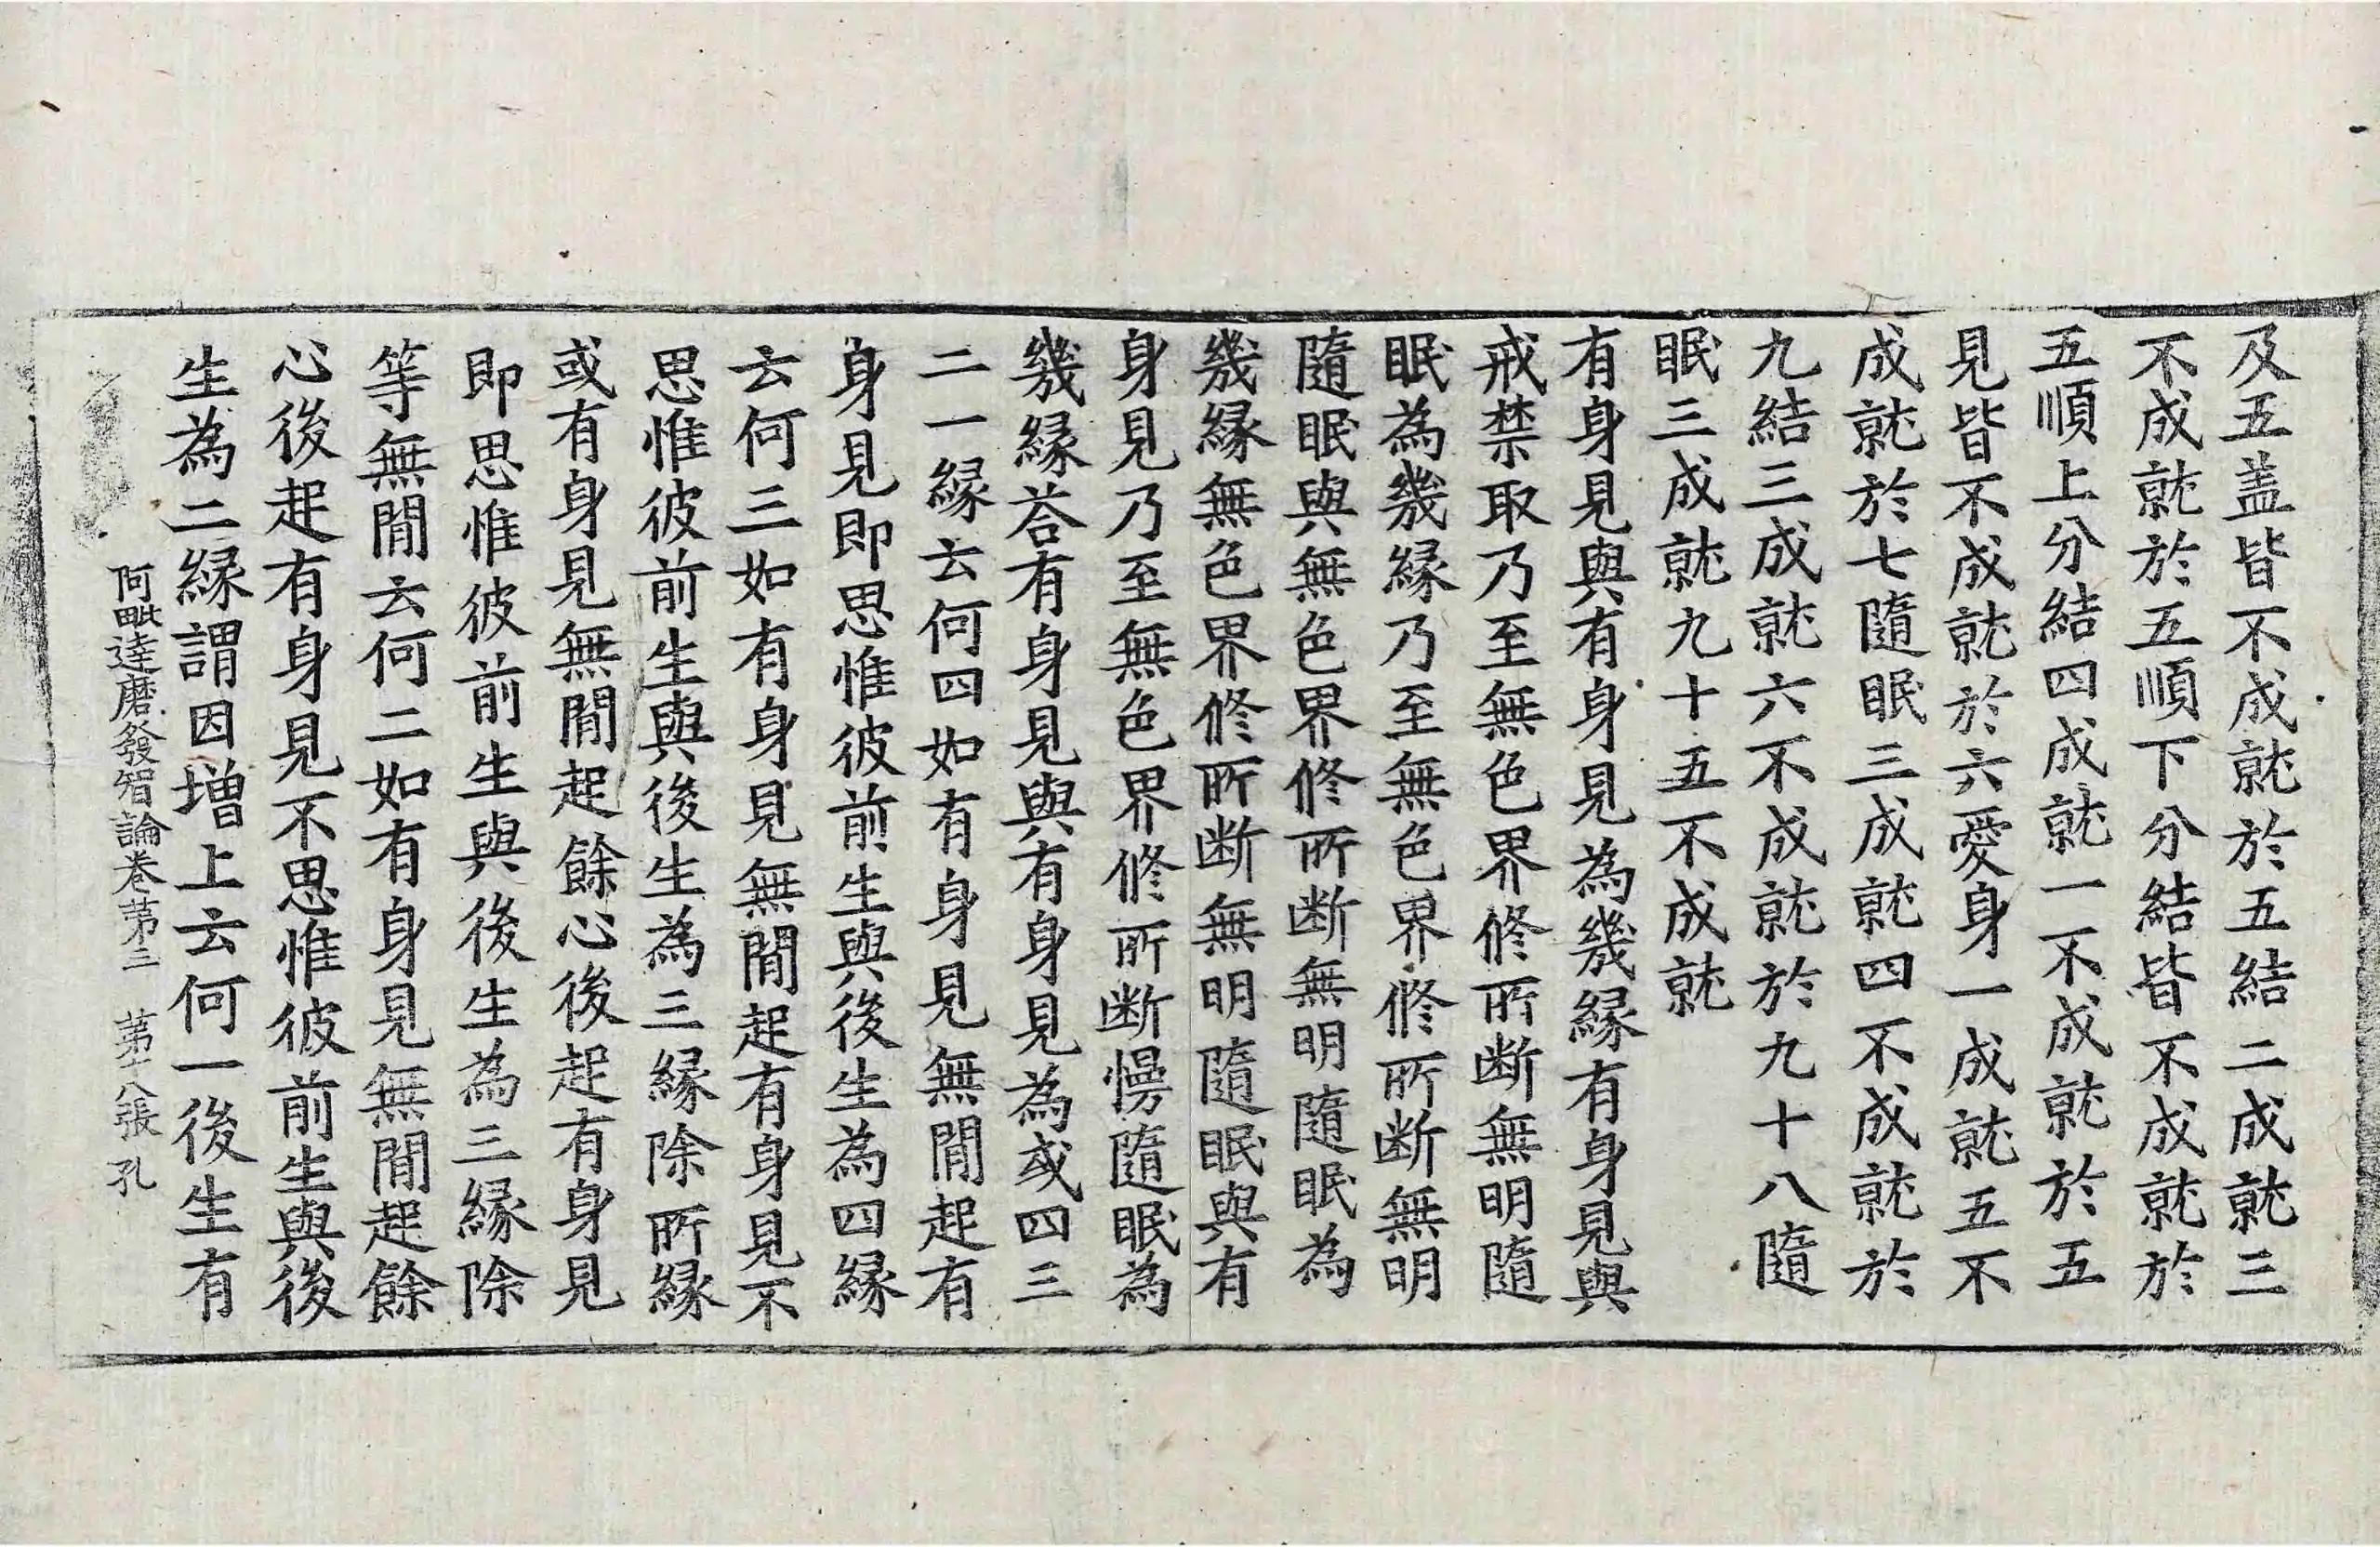 及五盖皆不成就於五結二成就三
不成就於五順下分結皆不成就於
五順上分結四成就一不成就於五
見皆不成就於六愛身一成就五不
成就於七隨眠三成就四不成就於
九結三成就六不成就於九十八隨
眠三成就九十五不成就
有身見與有身見為幾緣有身見與
戒禁取乃至無色界修所断無明隨
眠為幾緣乃至無色界修所断無明
隨眠與無色界修所断無明隨眠為
幾緣無色界修所断無明隨眠與有
身見乃至無色界修所断慢隨眠為
幾緣荅有身見與有身見為或四三
二一緣云何四如有身見無間起有
身見即思惟彼前生與後生為四緣
云何三如有身見無間起有身見不
思惟彼前生與後生為三緣除所緣
或有身見無間起餘心後起有身見
即思惟彼前生與後生為三緣除
等無間云何二如有身見無間起餘
心後起有身見不思惟彼前生與後
生為二緣謂因增上云何一後生有
阿毗達磨發智論卷第三 第十八張 孔